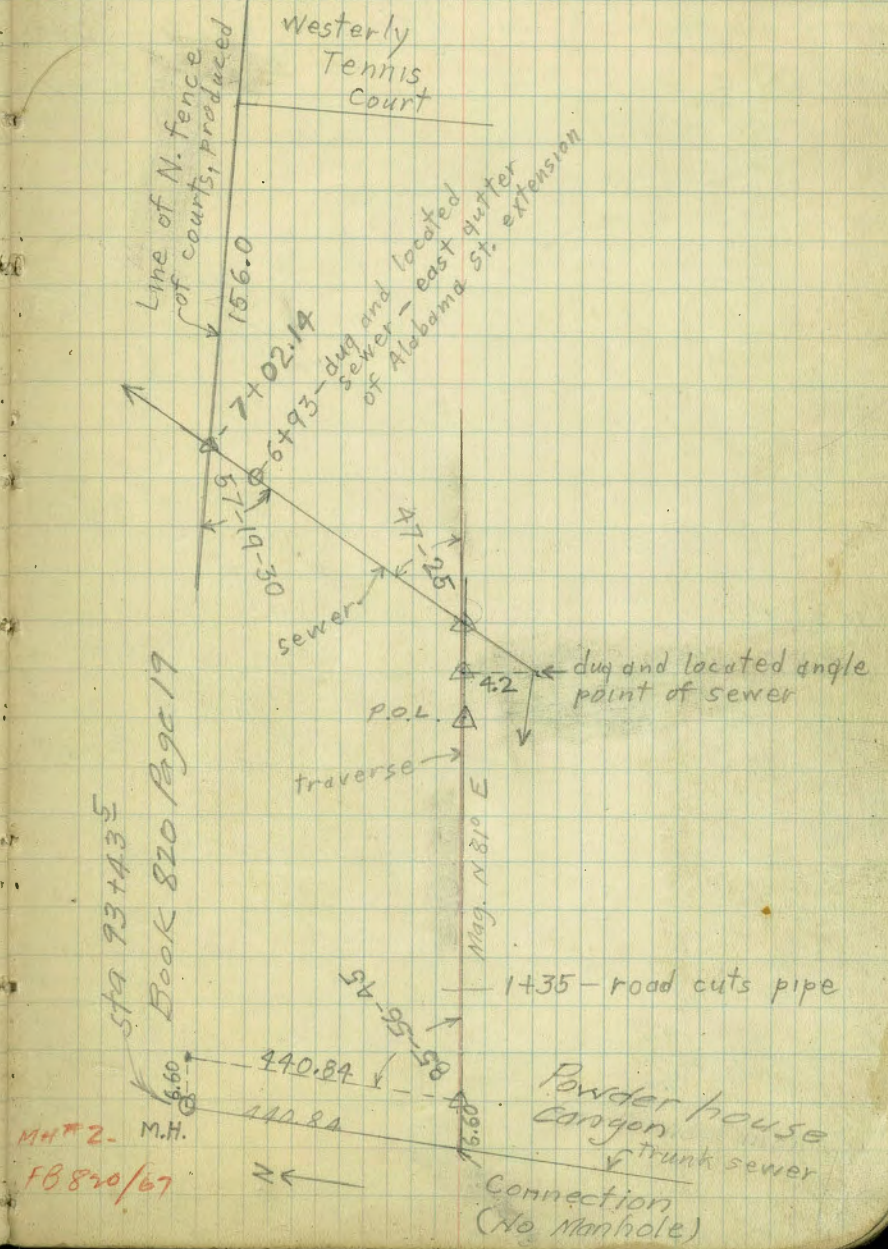 Westerly
Tennis
Court
Line of N. fence
of courts, produced
156.0
7+02.14
6+93 - dug and located
sewer - east gutter
of Alabama St. extension
41-25
sewer
dug and located angle
point of sewer
4.2
P.O.L.
traverse
Mag. N 81° E
Sta 93+43 5
Book 820 Page 19
1+35 - road cuts pipe
85-55-45
440.84
6.60
440.84
6.60
M.H.
MH #2-
FB 820/67
N
Powder house
Canyon
trunk sewer
Connection
(No Manhole)